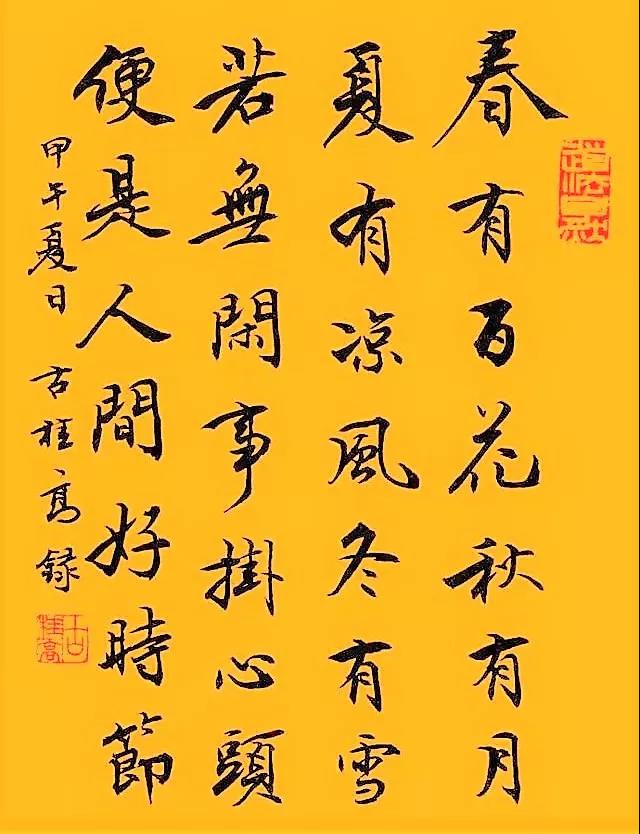 春有百花秋有月
夏有凉風冬有雪
若無閑事掛心頭
便是人間好時節
甲午夏日古桂高録